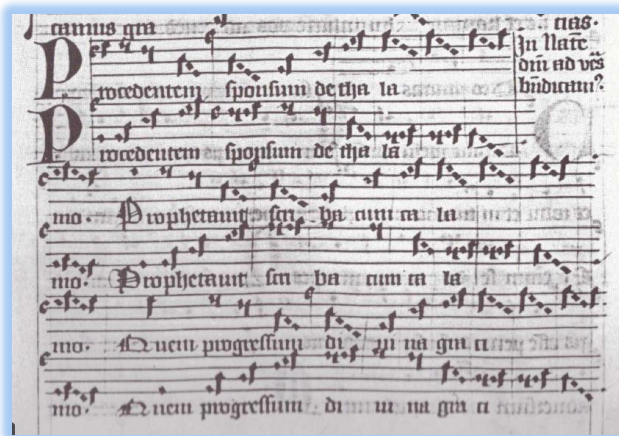 camus gra cias.
In Nate
Procedentem sponsum de tha la dm̄ ad ves
bn̄dicam?
Procedentem sponsum de tha la
mo. Prophetauit scri ba cum ca la
mo. Prophetauit scri ba cum ca la
mo. Quem progressum di ui na gra ci
mo. Quem progressum di ui na gra ci